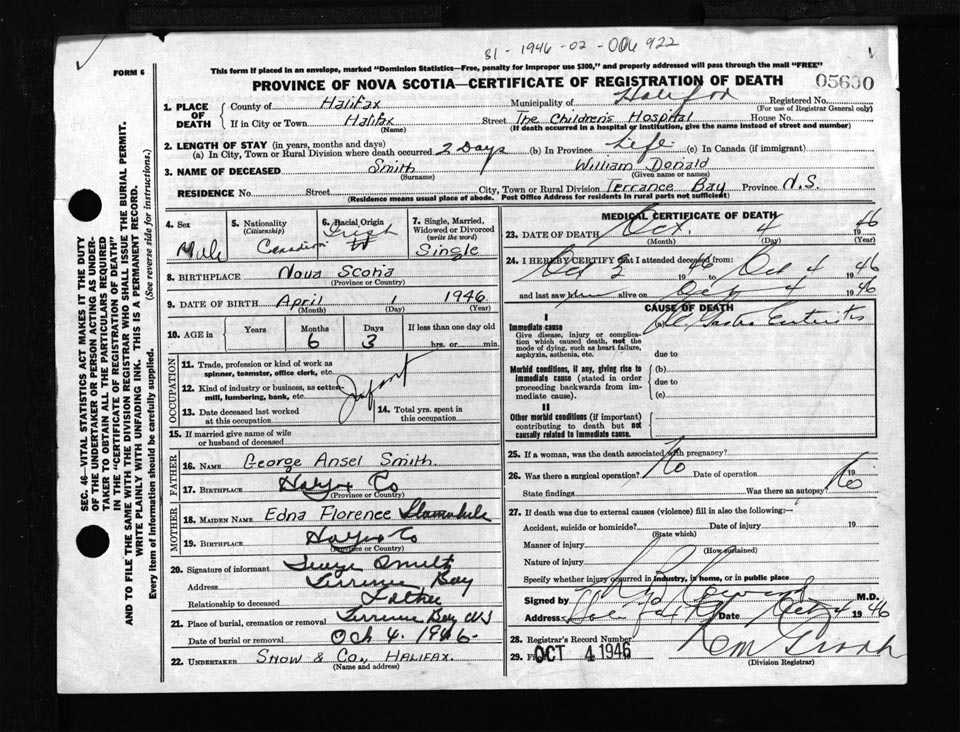 81 - 1946 - 02 - 006922
FORM 6
This form if placed in an envelope, marked "Dominion Statistics—Free, penalty for improper use $300," and properly addressed will pass through the mail "FREE"
PROVINCE OF NOVA SCOTIA—CERTIFICATE OF REGISTRATION OF DEATH
SEC. 46—VITAL STATISTICS ACT MAKES IT THE DUTY
OF THE UNDERTAKER OR PERSON ACTING AS UNDER-
TAKER TO OBTAIN ALL THE PARTICULARS REQUIRED
IN THE "CERTIFICATE OF REGISTRATION OF DEATH"
AND TO FILE THE SAME WITH THE DIVISION REGISTRAR WHO SHALL ISSUE THE BURIAL PERMIT.
WRITE PLAINLY WITH UNFADING INK. THIS IS A PERMANENT RECORD.
Every item of information should be carefully supplied. (See reverse side for instructions.)
1. PLACE OF DEATH
County of Halifax Municipality of Halifax Registered No.
(For use of Registrar General only)
If in City or Town Halifax Street The Children's Hospital House No.
(Name) (If death occurred in a hospital or institution, give the name instead of street and number)
2. LENGTH OF STAY (in years, months and days)
(a) In City, Town or Rural Division where death occurred 2 Days (b) In Province Life (c) In Canada (if immigrant)
3. NAME OF DECEASED Smith William Donald
(Surname) (Given name or names)
RESIDENCE No. Street City, Town or Rural Division Terrance Bay Province N.S.
(Residence means usual place of abode. Post Office Address for residents in rural parts not sufficient)
4. Sex 5. Nationality (Citizenship) 6. Racial Origin 7. Single, Married, Widowed or Divorced (write the word)
Male Canadian Irish Single
8. BIRTHPLACE Nova Scotia
(Province or Country)
9. DATE OF BIRTH April 1 1946
(Month) (Day) (Year)
10. AGE in Years Months Days If less than one day old
6 3 hrs. or min.
OCCUPATION
11. Trade, profession or kind of work as spinner, teamster, office clerk, etc.
12. Kind of industry or business, as cotton-mill, lumbering, bank, etc. Infant
13. Date deceased last worked at this occupation 14. Total yrs. spent in this occupation
15. If married give name of wife or husband of deceased
FATHER
16. NAME George Ansel Smith.
17. BIRTHPLACE Halifax Co
(Province or Country)
MOTHER
18. MAIDEN NAME Edna Florence
19. BIRTHPLACE Halifax Co
(Province or Country)
20. Signature of informant George Smith
Address Terrence Bay
Relationship to deceased Father
21. Place of burial, cremation or removal Terrence Bay NS
Date of burial or removal Oct 4. 1946-
22. UNDERTAKER SNOW & CO., HALIFAX.
(Name and address)
MEDICAL CERTIFICATE OF DEATH
23. DATE OF DEATH Oct. 4 1946
(Month) (Day) (Year)
24. I HEREBY CERTIFY that I attended deceased from:
Oct 2 1946 to Oct 4 1946
and last saw him alive on Oct 4 1946
CAUSE OF DEATH
I
Immediate cause Gastro Enteritis
Give disease, injury or complication which caused death, not the mode of dying, such as heart failure, asphyxia, asthenia, etc.
due to
Morbid conditions, if any, giving rise to immediate cause (stated in order proceeding backwards from immediate cause).
(b)
due to
(c)
II
Other morbid conditions (if important) contributing to death but not causally related to immediate cause.
25. If a woman, was the death associated with pregnancy?
26. Was there a surgical operation? No Date of operation 19
State findings Was there an autopsy? No
27. If death was due to external causes (violence) fill in also the following:—
Accident, suicide or homicide? Date of injury 19
(State which)
Manner of injury
(How sustained)
Nature of injury
Specify whether injury occurred in industry, in home, or in public place
Signed by M.D.
Address Halifax Date Oct 4 1946
28. Registrar's Record Number
29. OCT 4 1946
(Division Registrar)